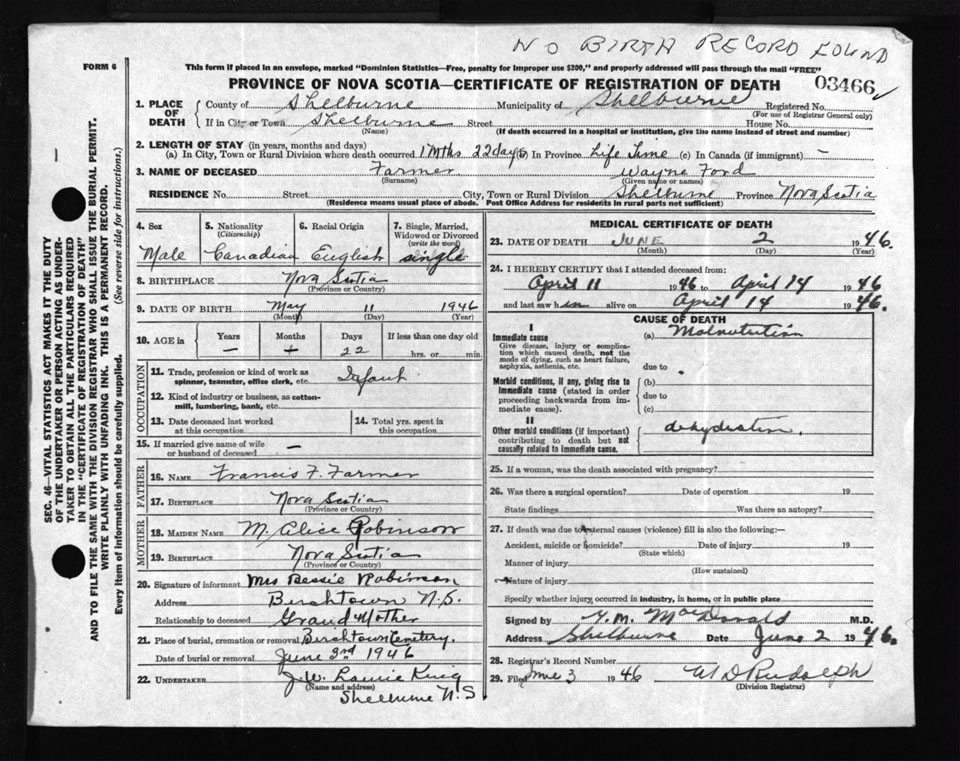 NO BIRTH RECORD FOUND
FORM 6
This form if placed in an envelope, marked "Dominion Statistics—Free, penalty for improper use $300," and properly addressed will pass through the mail "FREE"
PROVINCE OF NOVA SCOTIA—CERTIFICATE OF REGISTRATION OF DEATH 03466
1. PLACE OF DEATH County of Shelburne Municipality of Shelburne Registered No.
(For use of Registrar General only)
If in City or Town Shelburne Street House No.
(Name) (If death occurred in a hospital or institution, give the name instead of street and number)
2. LENGTH OF STAY (in years, months and days)
(a) In City, Town or Rural Division where death occurred 1 Mths 22 days (b) In Province Life Time (c) In Canada (if immigrant) —
3. NAME OF DECEASED Farmer Wayne Ford
(Surname) (Given name or names)
RESIDENCE No. Street City, Town or Rural Division Shelburne Province Nova Scotia
(Residence means usual place of abode. Post Office Address for residents in rural parts not sufficient)
4. Sex 5. Nationality (Citizenship) 6. Racial Origin 7. Single, Married, Widowed or Divorced (write the word)
Male Canadian English single
8. BIRTHPLACE Nova Scotia
(Province or Country)
9. DATE OF BIRTH May 11 1946
(Month) (Day) (Year)
10. AGE in Years Months Days If less than one day old
— 1 22 hrs. or min.
OCCUPATION
11. Trade, profession or kind of work as spinner, teamster, office clerk, etc. Infant
12. Kind of industry or business, as cotton-mill, lumbering, bank, etc.
13. Date deceased last worked at this occupation
14. Total yrs. spent in this occupation
15. If married give name of wife or husband of deceased —
FATHER
16. NAME Francis F. Farmer
17. BIRTHPLACE Nova Scotia
(Province or Country)
MOTHER
18. MAIDEN NAME M. Alice Robinson
19. BIRTHPLACE Nova Scotia
(Province or Country)
20. Signature of informant Mrs Bessie Robinson
Address Birchtown N.S.
Relationship to deceased Grand Mother
21. Place of burial, cremation or removal Birchtown Cemetery.
Date of burial or removal June 3rd 1946
22. UNDERTAKER J. W. Laurie King
(Name and address)
Shelburne N.S
MEDICAL CERTIFICATE OF DEATH
23. DATE OF DEATH JUNE 2 1946.
(Month) (Day) (Year)
24. I HEREBY CERTIFY that I attended deceased from:
April 11 1946 to April 14 1946
and last saw him alive on April 14 1946.
CAUSE OF DEATH
I
Immediate cause (a) Malnutrition
Give disease, injury or complication which caused death, not the mode of dying, such as heart failure, asphyxia, asthenia, etc.
due to
Morbid conditions, if any, giving rise to immediate cause (stated in order proceeding backwards from immediate cause). (b)
due to
(c)
II
Other morbid conditions (if important) contributing to death but not causally related to immediate cause. dehydration.
25. If a woman, was the death associated with pregnancy?
26. Was there a surgical operation? Date of operation 19
State findings Was there an autopsy?
27. If death was due to external causes (violence) fill in also the following:—
Accident, suicide or homicide? Date of injury 19
(State which)
Manner of injury
(How sustained)
Nature of injury
Specify whether injury occurred in industry, in home, or in public place
Signed by MacDonald M.D.
Address Shelburne Date June 2 1946.
28. Registrar's Record Number
29. Filed June 3 1946 W D Rudolph
(Division Registrar)
SEC. 46—VITAL STATISTICS ACT MAKES IT THE DUTY
OF THE UNDERTAKER OR PERSON ACTING AS UNDER-
TAKER TO OBTAIN ALL THE PARTICULARS REQUIRED
IN THE "CERTIFICATE OF REGISTRATION OF DEATH"
AND TO FILE THE SAME WITH THE DIVISION REGISTRAR WHO SHALL ISSUE THE BURIAL PERMIT.
WRITE PLAINLY WITH UNFADING INK. THIS IS A PERMANENT RECORD.
Every item of information should be carefully supplied. (See reverse side for instructions.)